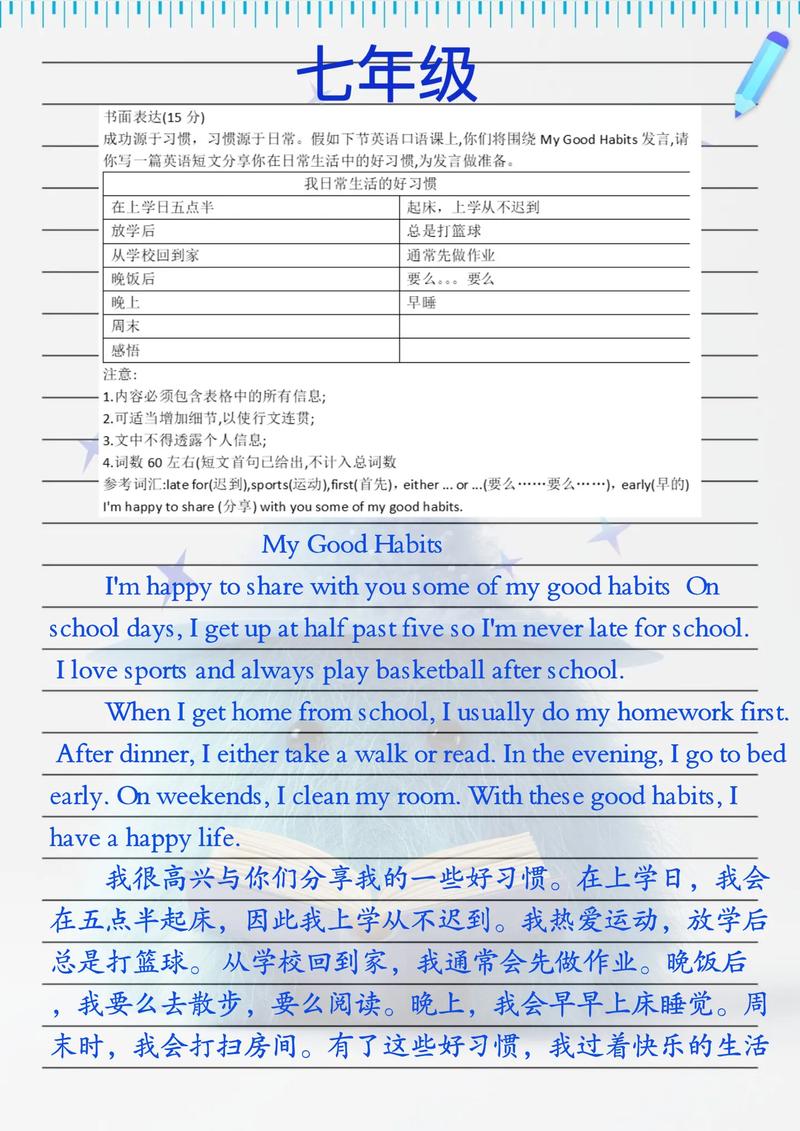 七年级
书面表达(15 分)
成功源于习惯，习惯源于日常。假如下节英语口语课上,你们将围绕 My Good Habits 发言,请
你写一篇英语短文分享你在日常生活中的好习惯,为发言做准备。
我日常生活的好习惯
在上学日五点半 起床，上学从不迟到
放学后 总是打篮球
从学校回到家 通常先做作业
晚饭后 要么。。。要么
晚上 早睡
周末
感悟
注意:
1.内容必须包含表格中的所有信息;
2.可适当增加细节,以使行文连贯;
3.文中不得透露个人信息;
4.词数 60 左右(短文首句已给出,不计入总词数
参考词汇:late for(迟到),sports(运动),first(首先)，either ... or ...(要么……要么……)，early(早的)
I'm happy to share (分享) with you some of my good habits.
My Good Habits
I'm happy to share with you some of my good habits On
school days, I get up at half past five so I'm never late for school.
I love sports and always play basketball after school.
When I get home from school, I usually do my homework first.
After dinner, I either take a walk or read. In the evening, I go to bed
early. On weekends, I clean my room. With these good habits, I
have a happy life.
我很高兴与你们分享我的一些好习惯。在上学日，我会
在五点半起床，因此我上学从不迟到。我热爱运动，放学后
总是打篮球。 从学校回到家，我通常会先做作业。晚饭后
，我要么去散步，要么阅读。晚上，我会早早上床睡觉。周
末时，我会打扫房间。有了这些好习惯，我过着快乐的生活